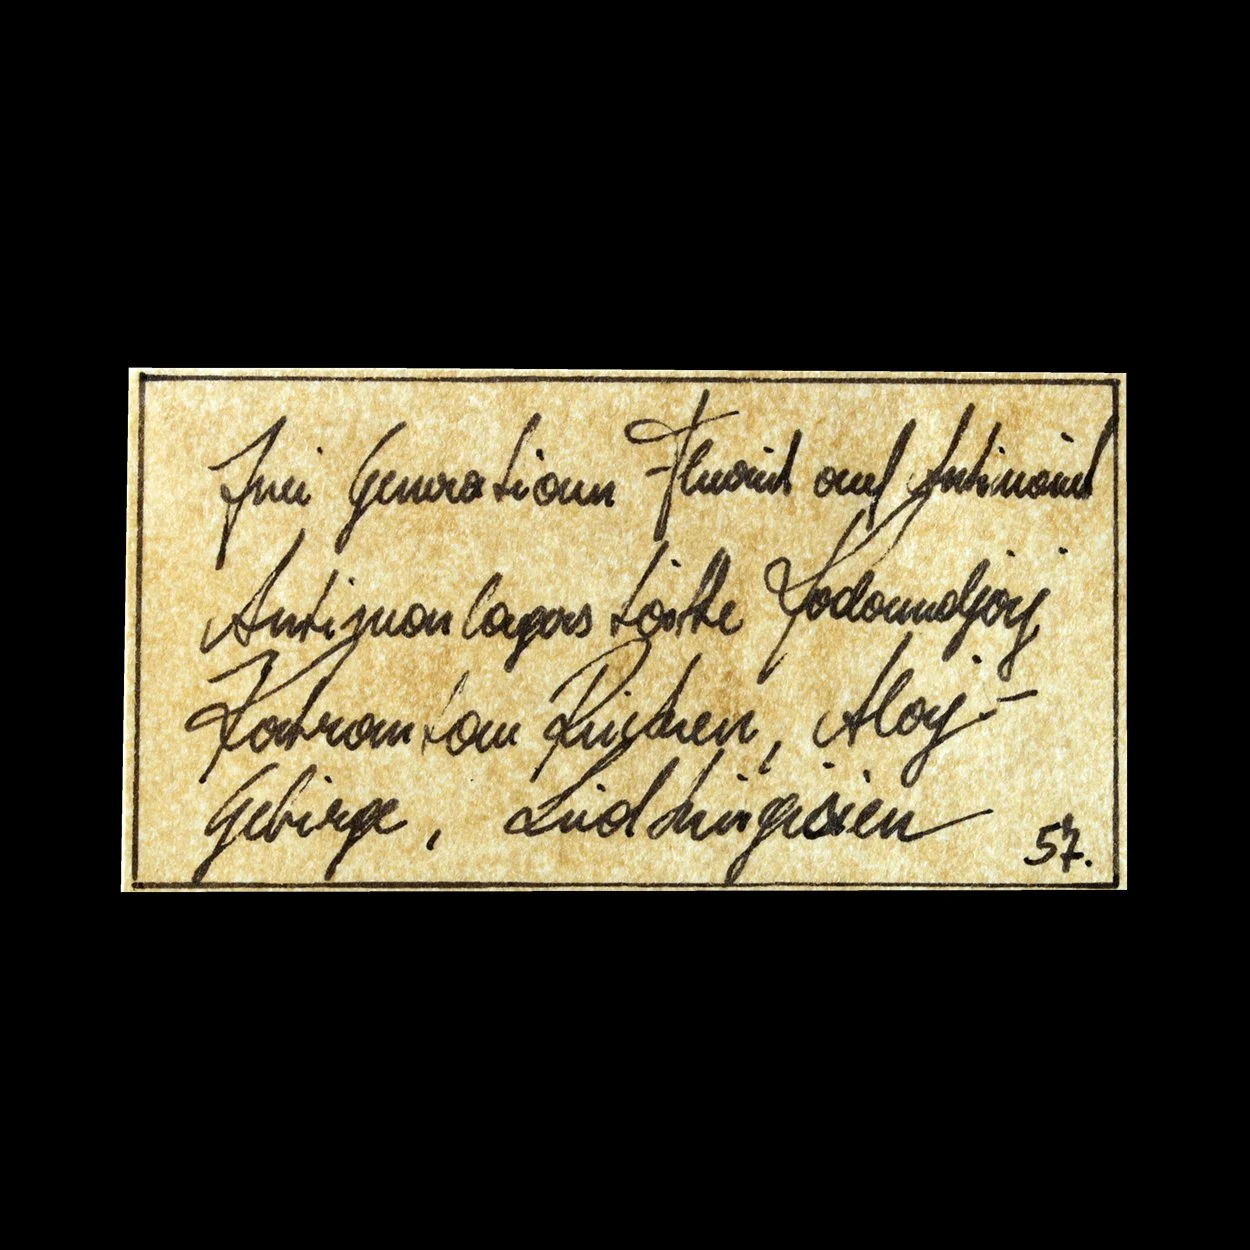 Zwei Generationen Fluorit auf Antimonit
Antimonlagerstätte Kadamdjaj,
Katrantau Rücken, Alaj-
Gebirge, Südkirgisien
57.